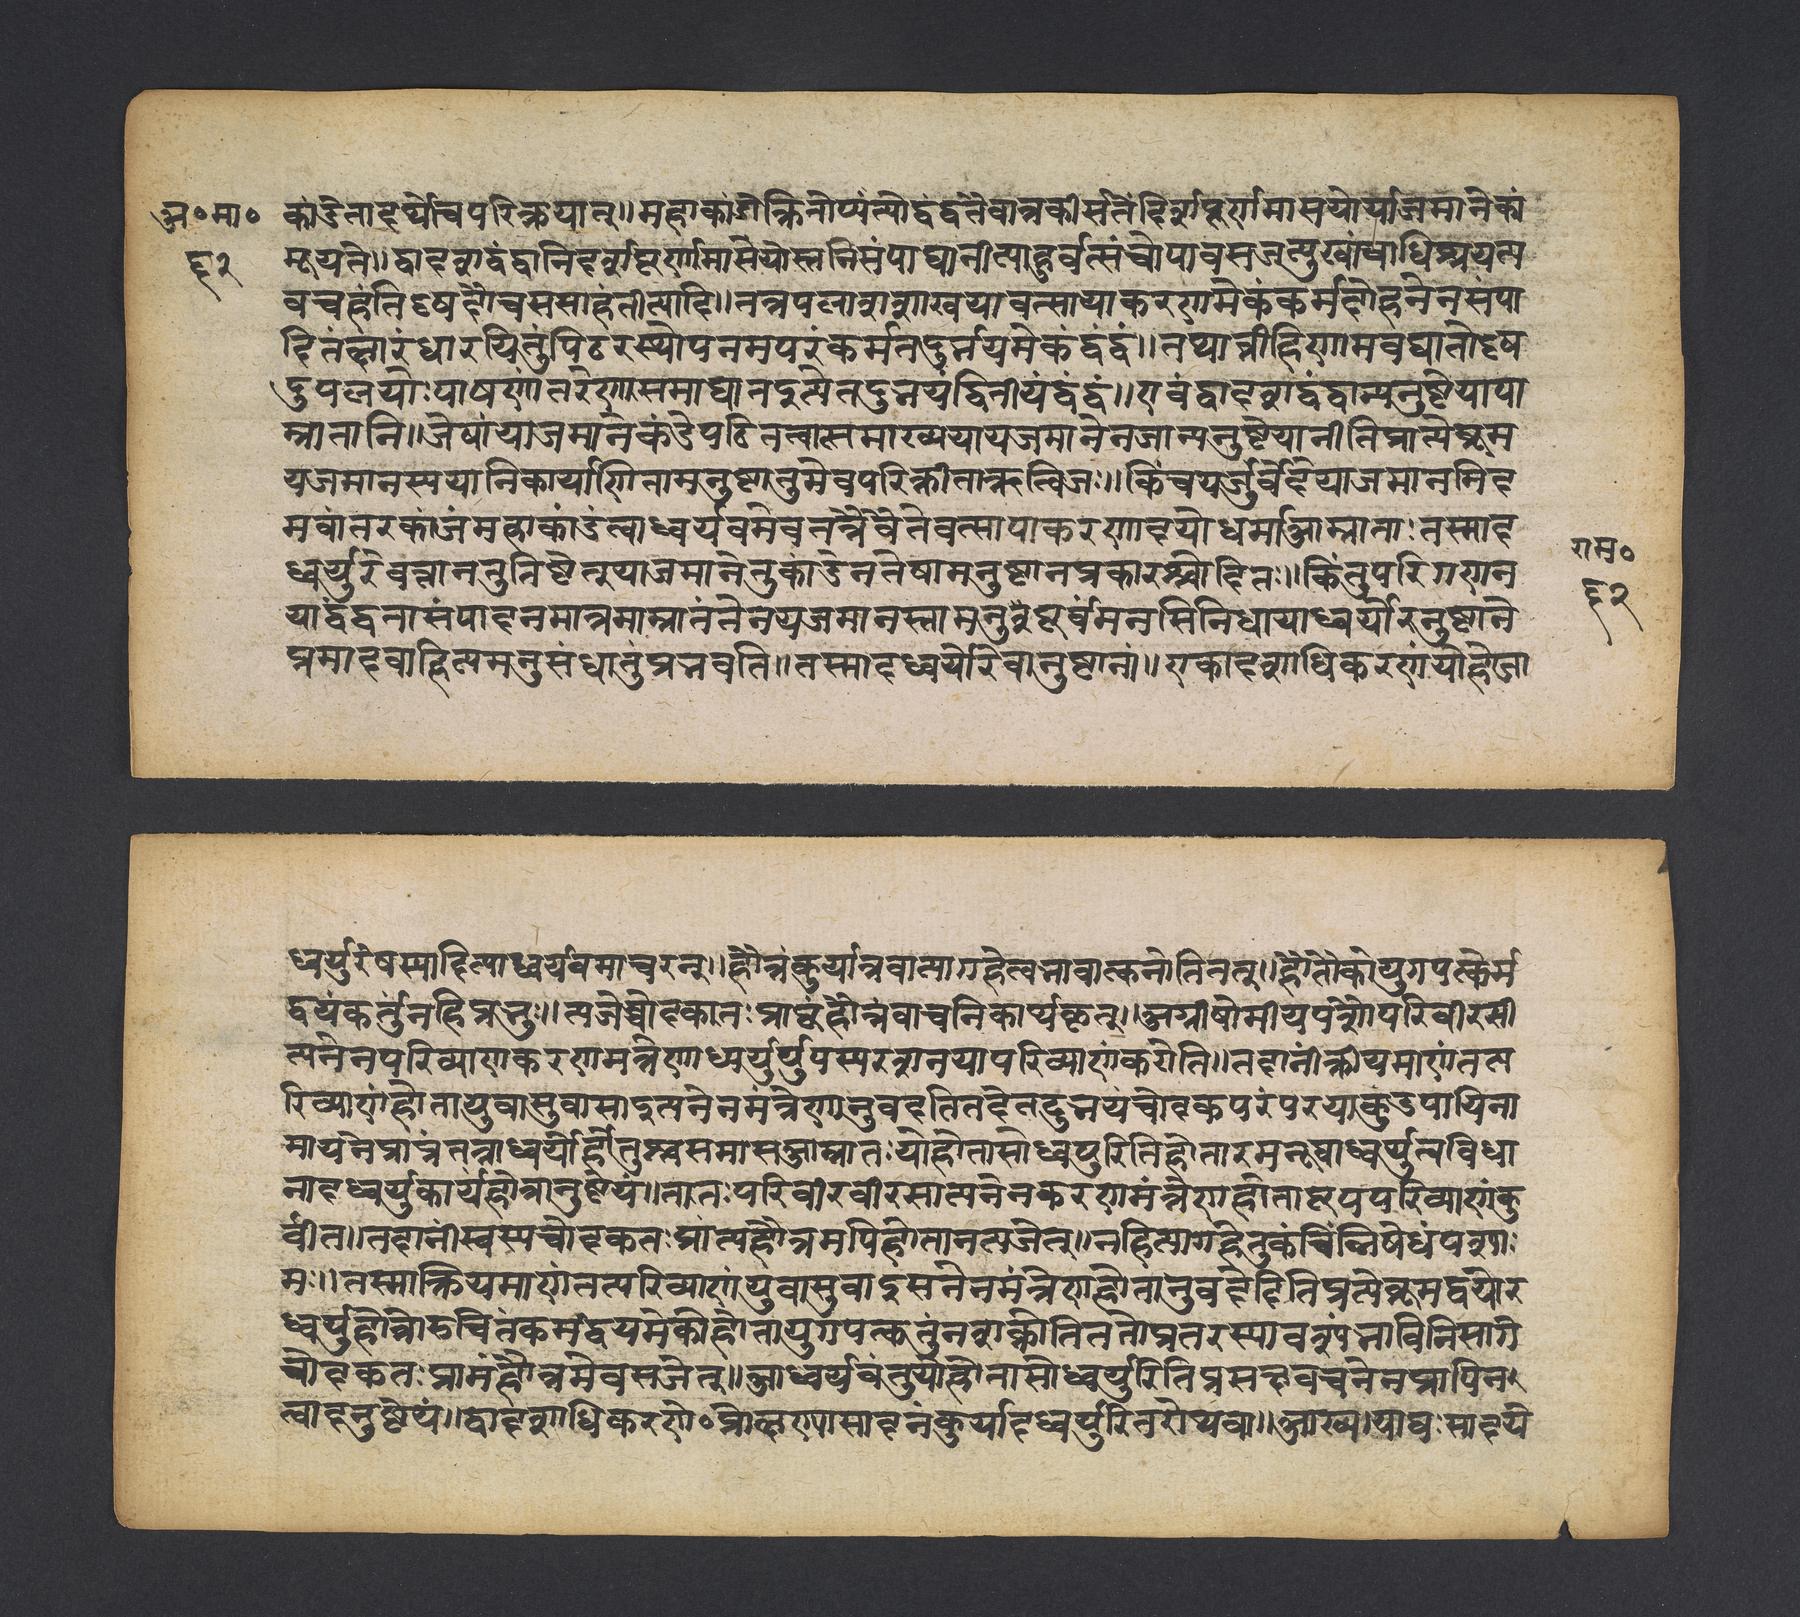 अ॰मा॰
६२
कांडेताहर्थ्याच्चपरिक्रयात्॥महाकांडोक्तितोप्यंत्योद्वंद्वतैवात्रकीर्सतेहिर्शपूर्णमासयोर्याजमानेकां
म्रूयते॥द्वादशद्वंद्वानिदर्शपूर्णमासयोस्तानिसंपाद्यानीत्याहुर्वत्संचोपावसजत्युखांचाधिश्रयत्य
वचहंतिदृषदौचससाहंतीत्यादि॥तत्रपलाशशाखयावत्सापाकरणमेकंकर्मदोहनेनसंपा
दितंक्षारंधारयितुंपिठरस्योपनमपरंकर्मतदुभयमेकंद्वंद्वं॥तथाव्रीहिणामवघातोदृष
दुपलयोःपाषाणांतरेणसमाघातदुत्येतदुभयंद्वितीयंद्वंद्वं॥एवंद्वादशद्वंद्वान्यनुष्ठेयापा
म्नातानि॥जेषांयाजमानेकंडेपठितत्वात्समाख्ययायजमानेनजान्यनुष्ठेयानीतिप्राप्तेब्रूम
यजमानस्ययानिकार्याणितामनुष्ठातुमेवपरिक्रीताऋत्विजः॥किंचयर्जुर्वेदेयाजमानमिद
मवांतरकांडंमहाकांडंत्वाध्वर्यवमेवतत्रैवैतेवत्सापाकरणादयोधर्माआम्नाताःतस्माद
ध्वर्युरेवतानतुतिष्ठेत्तुयाजमानेतुकांडेनतेषामनुष्ठानप्रकारश्चोदितः॥किंतुपरिगणन
याद्वंद्वतासंपादनमात्रमाम्नातंतेनयजमानस्तामनुपूर्वंमनसिनिधायाध्वर्योरनुष्ठाने
प्रमादवाहित्यमनुसंधातुंप्रभवति॥तस्मादध्वर्योरेवानुष्ठानं॥एकादशाधिकरणंयोहोजा
राम॰
६२
ध्वर्युरेषस्पादित्याध्वर्यवमाचरन्॥होत्रंकुर्यान्नवात्यागहेत्वभावात्कनोतितत्॥होतौकोयुगपत्कर्म
द्वयंकर्तुंनहिप्रभुः॥त्यजेच्चोदकातःप्राप्तंहौत्रंवाचनिकार्थकृत्॥अग्नीषोमीयपशौपरिवीरसी
त्यनेनपरिव्याणकरणमंत्रेणाध्वर्युर्युपस्यरशनयापरिव्याणंकरोति॥तदानींक्रीयमाणंतत्प
रिव्याणंहोतायुवासुवासाइत्यनेनमंत्रेणानुवदतितदेतदुभयंचोदकपरंपरयाकुंडपायिना
मायनेप्राप्तंतत्राध्वर्योर्होतुश्चसमासआम्नातःयोहोतासोध्वर्युरितिहोतारमनूद्याध्वर्युत्वविधा
नादध्वर्युकार्यंहोत्रानुष्ठेयं॥तातःपरिवीरवीरसात्यनेनकरणमंत्रेणहोतायूपपरिव्याणंकु
र्वीत॥तदानींस्वस्यचोदकतःप्राप्तंहौत्रमपिहोतानत्यजेत्॥नहित्यागहेतुकंचिन्निषेधंपश्याः
मः॥तस्मात्क्रियमाणंतत्परिव्याणंयुवासुवाइत्यनेनमंत्रेणहोतानुवदेदितिप्राप्तेब्रूमद्वयोर
ध्वर्युहोत्रोरुचितंकर्मद्वयमेकोहोतायुगपत्कर्तुंनशक्नोतिततोप्रतरस्यावश्यंभाविनिसागे
चोदकतःप्राप्तंहौत्रमेवसजेत्॥आध्वर्यवंतुयोहोतासोध्वर्युरितिप्रसक्षवचनेनप्रापित
त्वादनुष्ठेयं॥द्वादशाधिकरणे॰प्रोक्षण्यासादनंकुर्यादध्वर्युरितरोयवा॥आख्ययाद्यःसादये